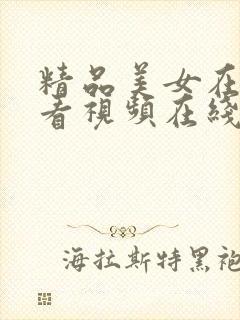 精品美女在
看視頻在綫
海拉斯特黑袍